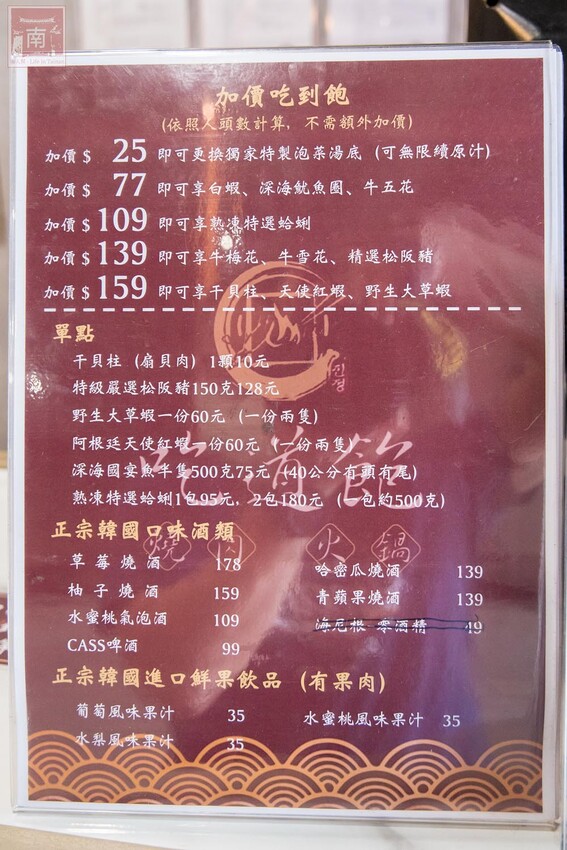 南
加價吃到飽
(依照人頭數計算, 不需額外加價)
加價 $ 25 即可更換獨家特製泡菜湯底 (可無限續原汁)
加價 $ 77 即可享白蝦、深海魷魚圈、牛五花
加價 $ 109 即可享熟凍特選蛤蜊
加價 $ 139 即可享牛梅花、牛雪花、精選松阪豬
加價 $ 159 即可享干貝柱、天使紅蝦、野生大草蝦
單點
干貝柱 (扇貝肉) 1顆10元
진정
特級嚴選松阪豬150克128元
野生大草蝦一份60元 (一份兩隻)
阿根廷天使紅蝦一份60元 (一份兩隻)
吃道飽
深海國宴魚半隻500克75元 (40公分有頭有尾)
熟凍特選蛤蜊1包95元, 2包180元 (一包約500克)
正宗韓國口味酒類
燒肉火鍋
草莓燒酒 178 哈密瓜燒酒 139
柚子燒酒 159 青蘋果燒酒 139
水蜜桃氣泡酒 109 海尼根 零酒精 49
CASS啤酒 99
正宗韓國進口鮮果飲品 (有果肉)
葡萄風味果汁 35 水蜜桃風味果汁 35
水梨風味果汁 35